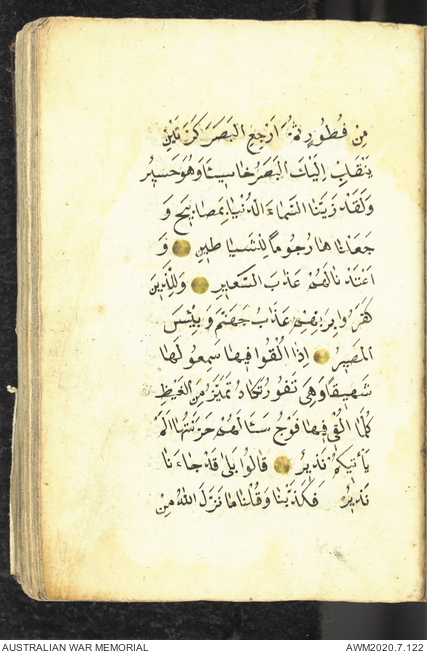 مِن فُطُورٍ ثُمَّ ارْجِعِ البَصَرَ كَرَّتَيْنِ
يَنقَلِبْ اِلَيْكَ البَصَرُ خَاسِئًا وَهُوَ حَسِيرٌ
وَلَقَدْ زَيَّنَّا السَّمَاءَ الدُّنْيَا بِمَصَابِيحَ وَ
جَعَلْنَاهَا رُجُومًا لِلشَّيَاطِينِ وَ
اَعْتَدْنَا لَهُمْ عَذَابَ السَّعِيرِ وَلِلَّذِينَ
كَفَرُوا بِرَبِّهِمْ عَذَابُ جَهَنَّمَ وَبِئْسَ
المَصِيرُ اِذَا اُلْقُوا فِيهَا سَمِعُوا لَهَا
شَهِيقًا وَهِىَ تَفُورُ تَكَادُ تَمَيَّزُ مِنَ الغَيْظِ
كُلَّمَا اُلْقِىَ فِيهَا فَوْجٌ سَئَلَهُمْ خَزَنَتُهَا اَلَمْ
يَأْتِكُمْ نَذِيرٌ قَالُوا بَلَى قَدْ جَاءَنَا
نَذِيرٌ فَكَذَّبْنَا وَقُلْنَا مَا نَزَّلَ اللهُ مِنْ
AUSTRALIAN WAR MEMORIAL
AWM2020.7.122